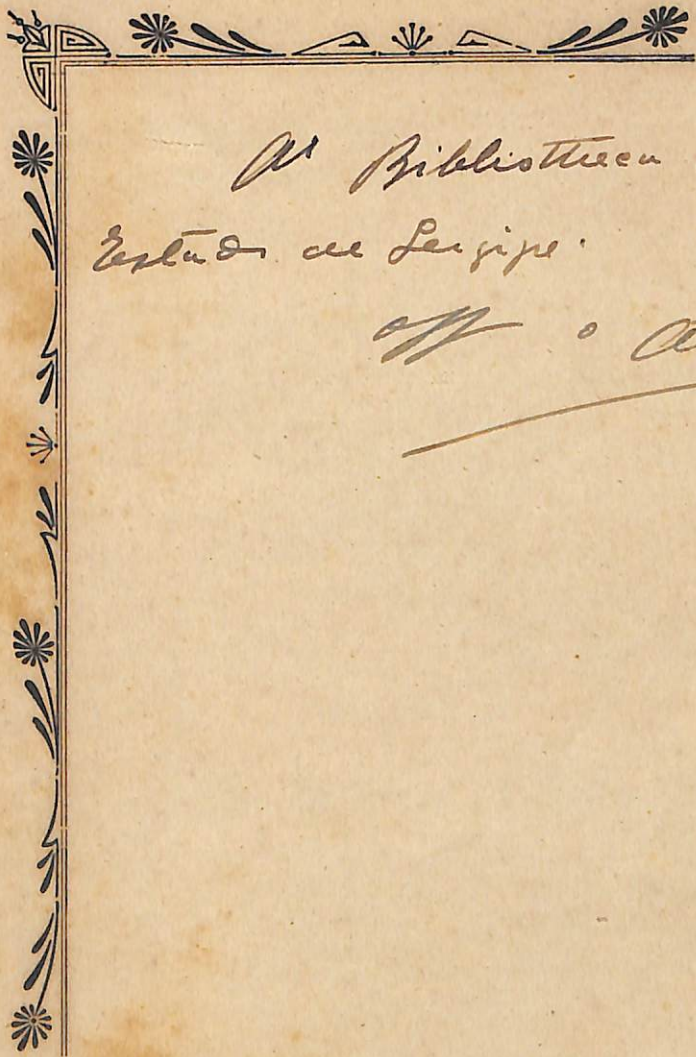 A' Bibliotheca
Estado de Sergipe.
off o A